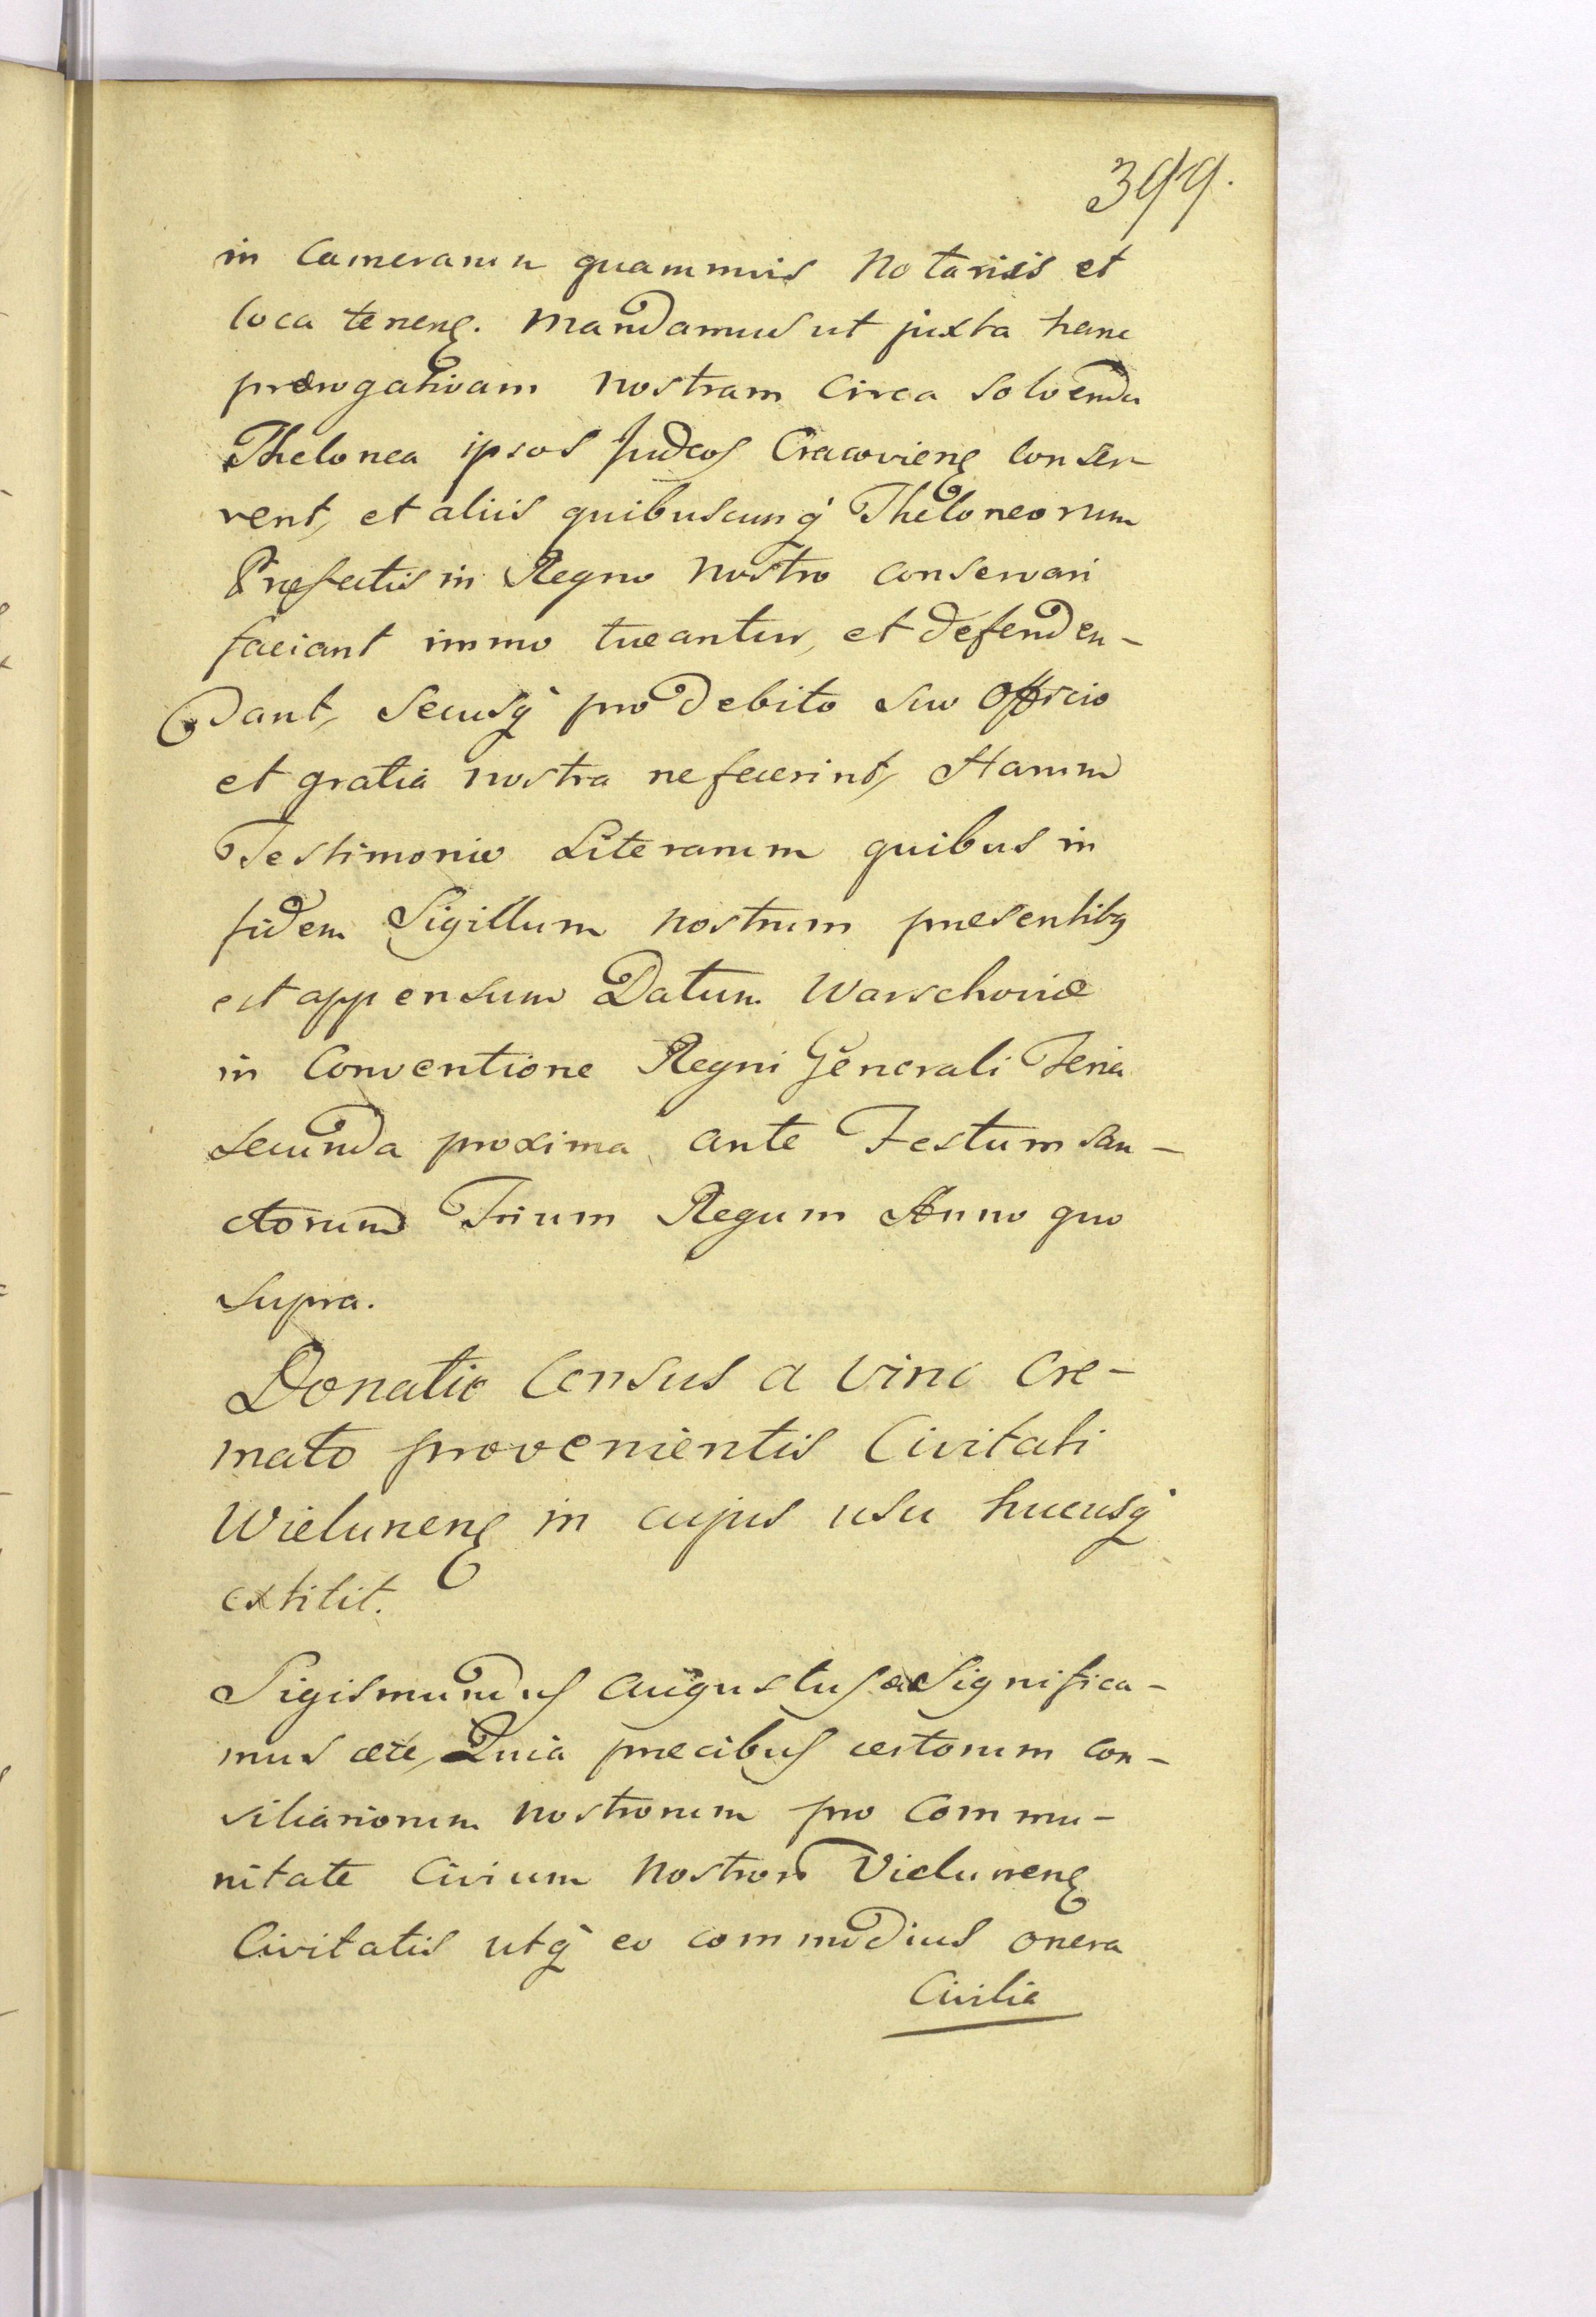 399.
in Camerarum quammvis Notariis et
loca tenenę. Mandamus ut juxta hanc
prærogativam nostram circa solvenda
Thelonea ipsos Judeos Cracovienę conser-
vent, et aliis quibuscunq̀ Theloneorum
Præfectis in Regno nostro conservari
faciant immo tueantur, et defenden-
dant, secusq̀ pro debito suo officio
et gratia nostra ne fecerint, Harum
Testimonio Literarum quibus in
fidem Sigillum nostrum præsentibq
est appensum Datum Warschoviæ
in Conventione Regni Generali Feria
secunda proxima ante Festum san-
ctorum Trium Regum Anno quo
supra.
Donatio Census a vino Cre-
mato provenientis Civitati
Wielunenę in cujus usu hucusq̀
extitit.
Sigismundus Augustus Significa-
mus Quia præcibus certorum con-
siliariorum nostrorum pro commu-
nitate Civium nostror Vielunenę
Civitatis utq̀ eo commodius onera
Civilia